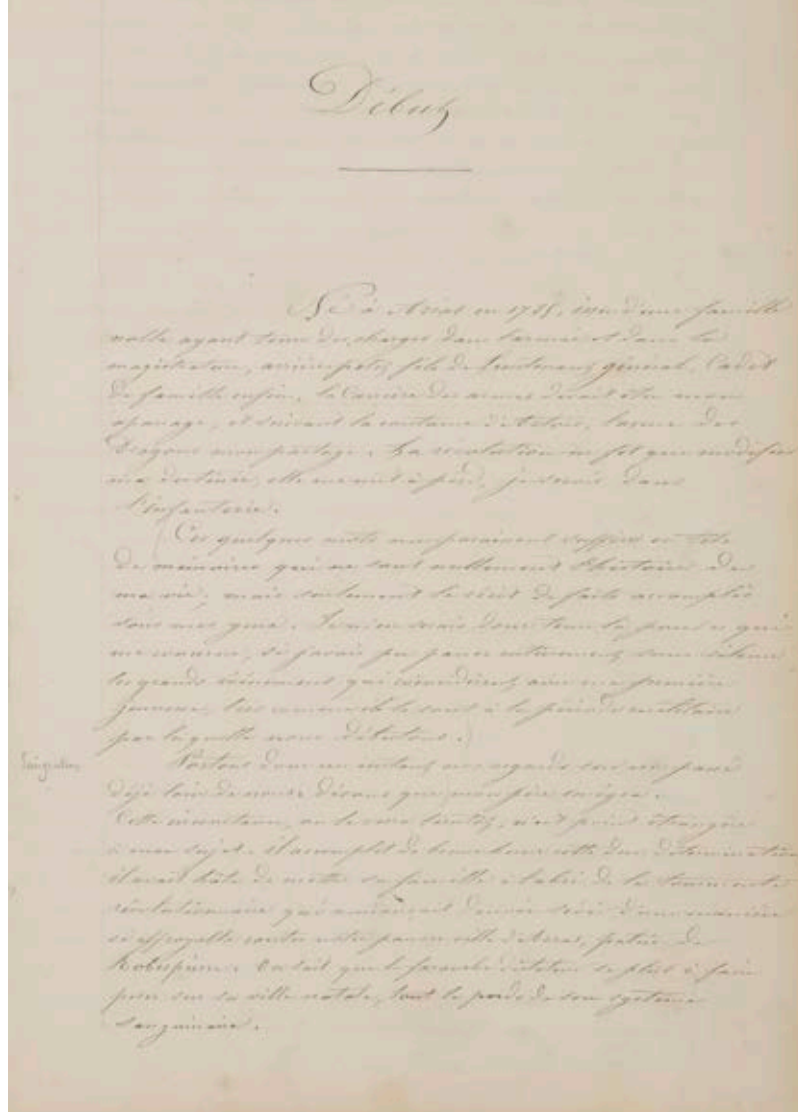 Début
Né à Arras en 1785, issu d'une famille
noble ayant tenu des charges dans l'armée et dans la
magistrature, arrière petit fils de Lieutenant général, Cadet
de famille enfin, la Carrière des armes devait être mon
apanage, et suivant la coutume d'Artois, l'arme des
Dragons mon partage. La révolution ne fit que modifier
ma destinée, elle me mit à pied, je servis dans
l'infanterie.
Ces quelques mots me paraissent suffire en tête
de mémoires qui ne sont nullement l'histoire de
ma vie, mais seulement le récit de faits accomplis
sous mes yeux. Je m'en serais donc tenu là, pour ce qui
me concerne, si j'avais pu passer entièrement sous silence
les grands événements qui
jeunesse, à la période militaire
par laquelle nous débutons.
Emigration
Portons donc un instant nos regards sur un passé
déjà loin de nous & disons que mon père émigra.
Cette circonstance, on le verra bientôt, n'est point étrangère
à mon sujet. Il accomplit de bonne heure cette détermination
il avait hâte de mettre sa famille à l'abri de la tourmente
révolutionnaire qui menaçait d'une manière
si effroyable contre notre pauvre ville d'Arras, patrie de
Robespierre. On sait que le farouche dictateur se plut à faire
peser sur sa ville natale, tout le poids de son système
sanguinaire.